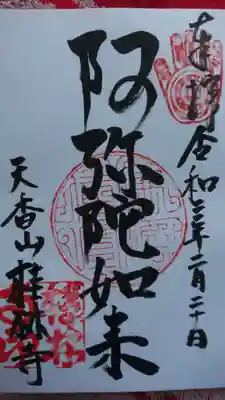 奉拝 令和三年二月二十日
阿弥陀如来
天香山 桂林寺